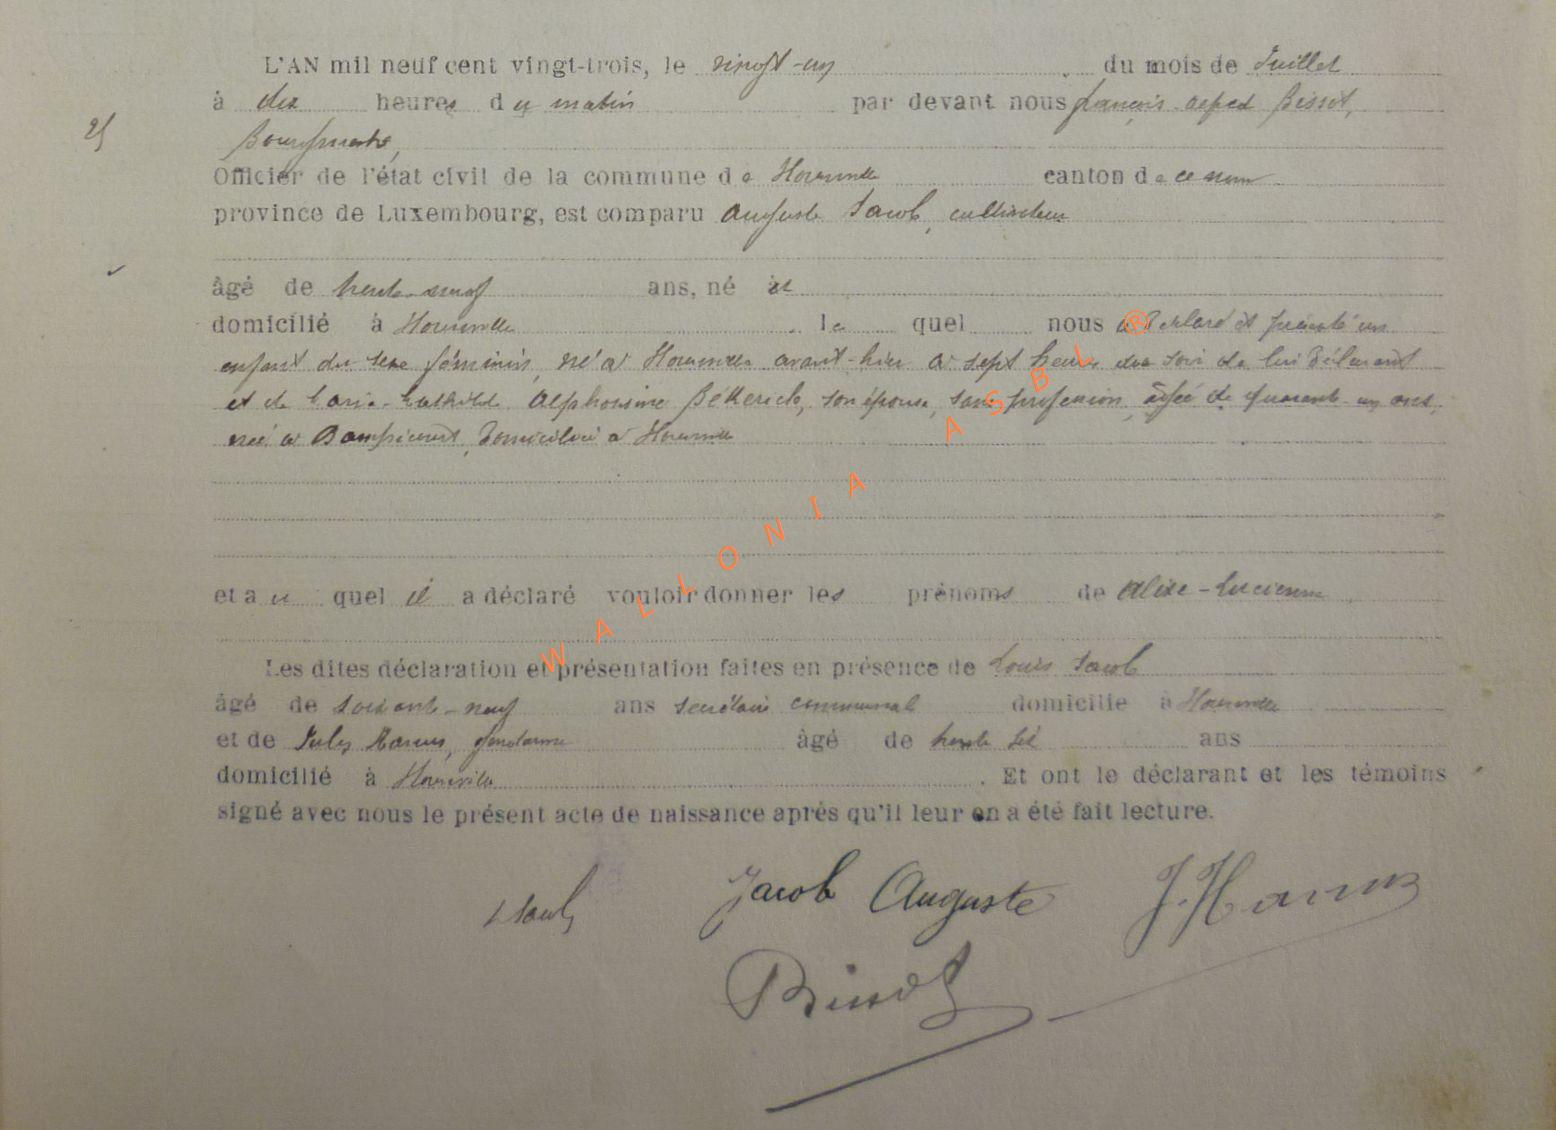 L'AN mil neuf cent vingt-trois, le vingt-un du mois de Juillet
à dix heures du matin par devant nous françois alfred Bissot,
25
Bourgmestre,
Officier de l'état civil de la commune de Honville canton de
province de Luxembourg, est comparu auguste Jacob, cultivateur
âgé de trente-neuf ans, né à
domicilié à le quel nous a déclaré et présenté un
enfant du sexe féminin, né à avant-hier à sept heures du soir de lui déclarant
et de alphonsine son épouse, sans profession, âgée de quarante-un ans,
née à domiciliée à
et au quel il a déclaré vouloir donner les prénoms de Alixe-Lucienne
Les dites déclaration et présentation faites en présence de Louis Jacob
âgé de soixante-neuf ans secrétaire communal domicilié à
et de Jules gendarme âgé de trente six ans
domicilié à . Et ont le déclarant et les témoins
signé avec nous le présent acte de naissance après qu'il leur en a été fait lecture.
Jacob Auguste
WALLONIA ASBL ®